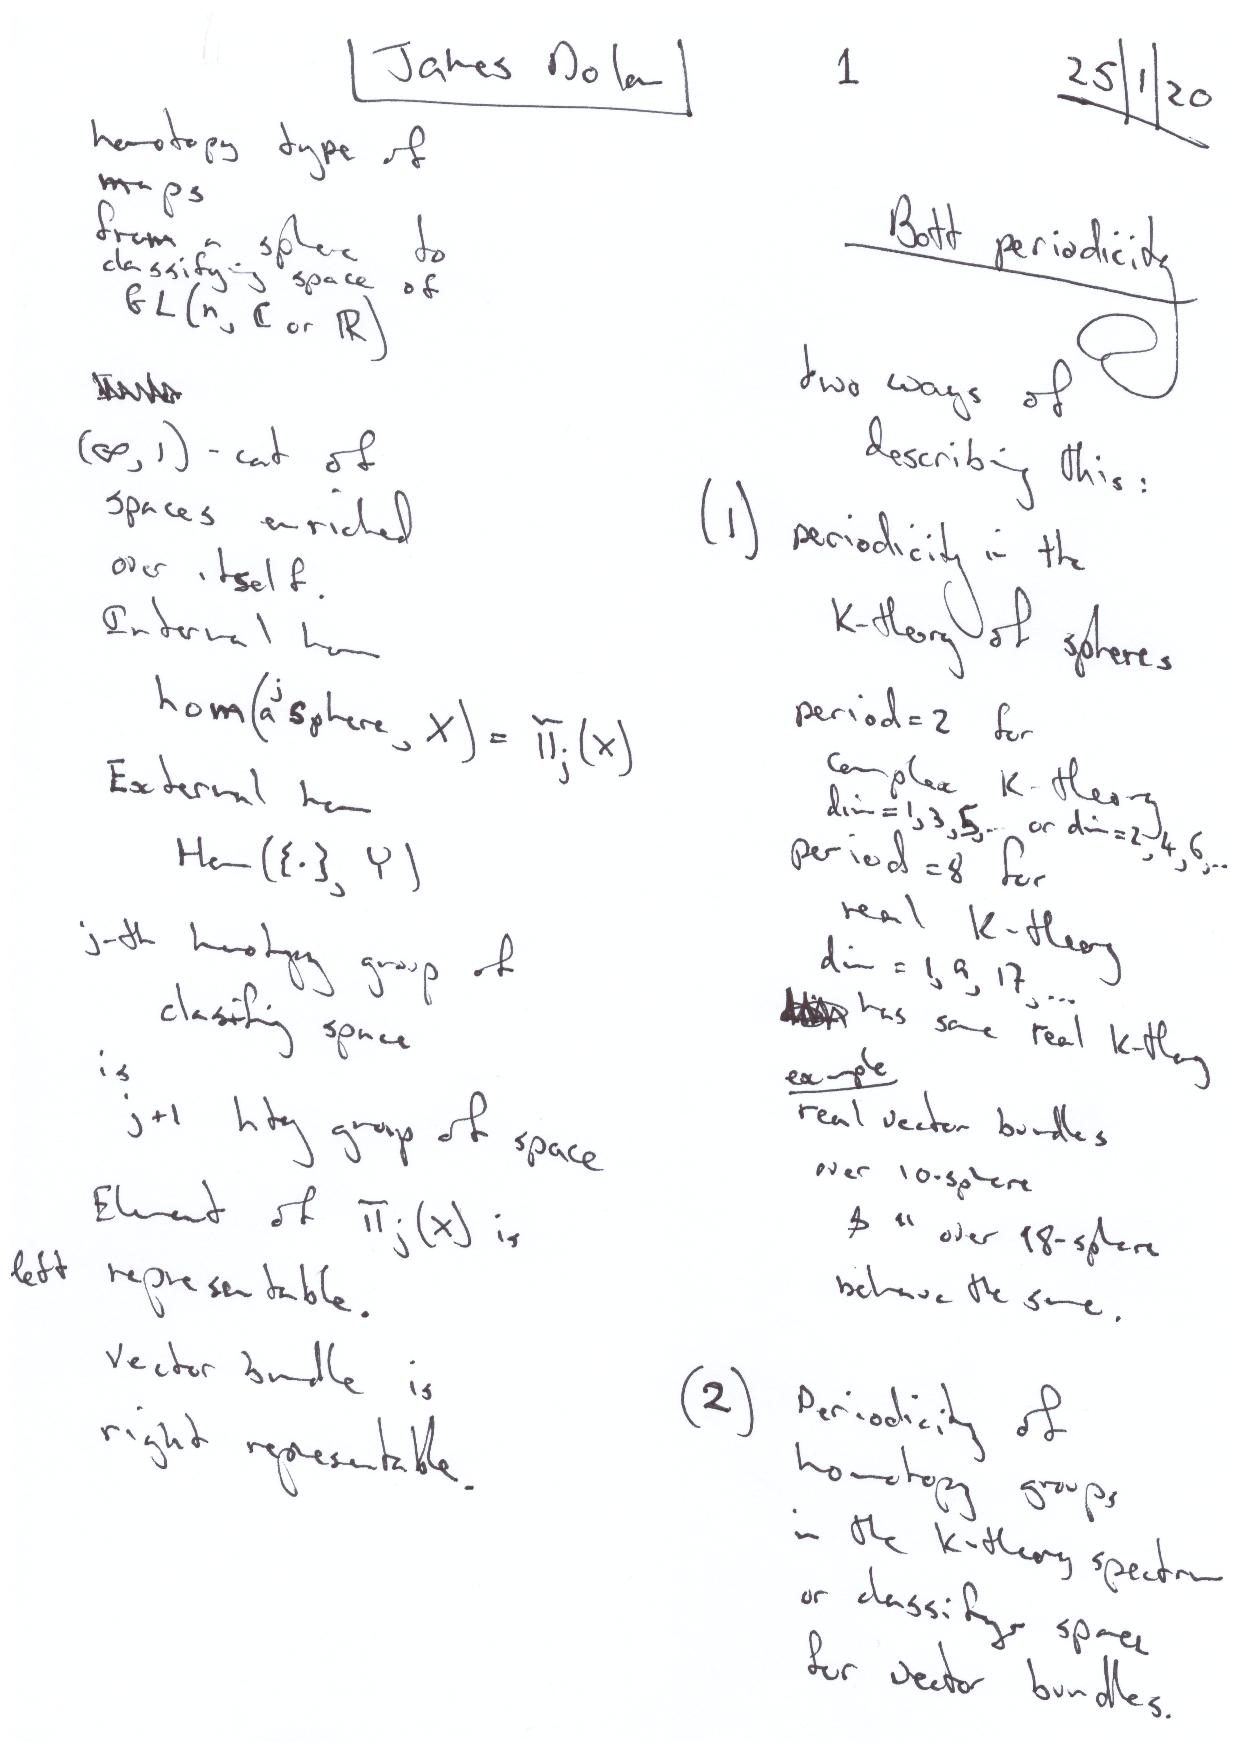 James Dolan
1
25/1/20
homotopy type of
maps
from a sphere to
classifying space of
GL(n, ℂ or ℝ)
(∞, 1) - cat of
spaces enriched
over itself.
Internal hom
hom(a j sphere, X) = π_j(X)
External hom
Hom({·}, Y)
j-th homotopy group of
clasifing space
is
j+1 htpy group of space
Element of π_j(X) is
left representable.
Vector bundle is
right representable.
Bott periodicity
two ways of
describing this:
(1) periodicity in the
K-theory of spheres
period = 2 for
complex K-theory
dim = 1, 3, 5, ... or dim = 2, 4, 6, ...
period = 8 for
real K-theory
dim = 1, 9, 17, ...
has same real K-theory
example
real vector bundles
over 10-sphere
& " over 18-sphere
behave the same.
(2) Periodicity of
homotopy groups
in the K-theory spectrum
or classifying spaces
for vector bundles.